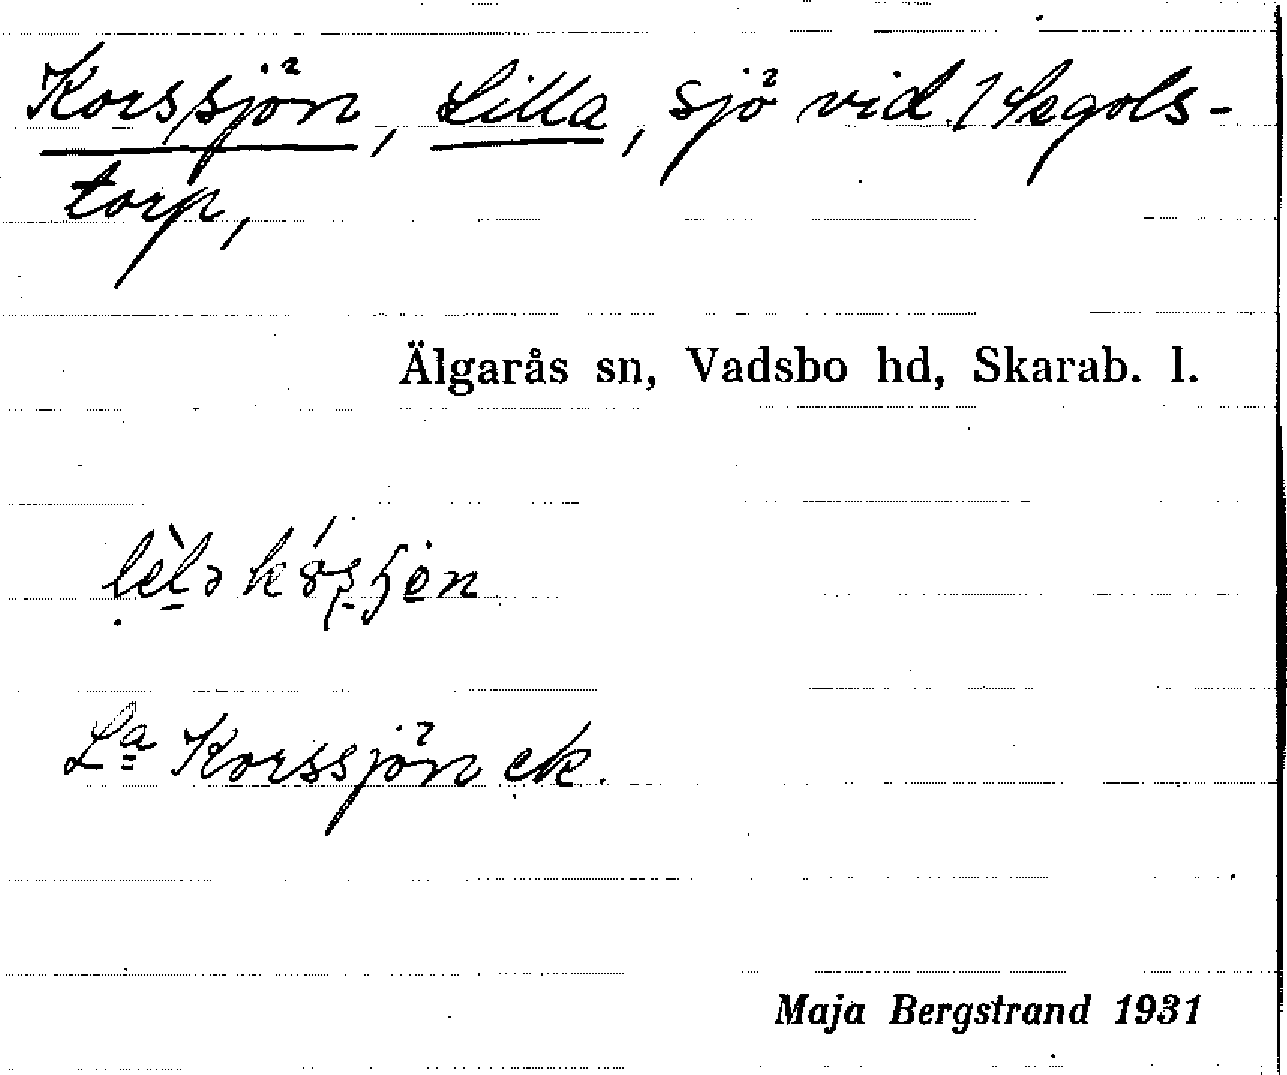 Korssjön, Lilla, sjö vid 1 Segols-
torp,
Älgarås sn, Vadsbo hd, Skarab. l.
Lª Korssjön ek.
Maja Bergstrand 1931